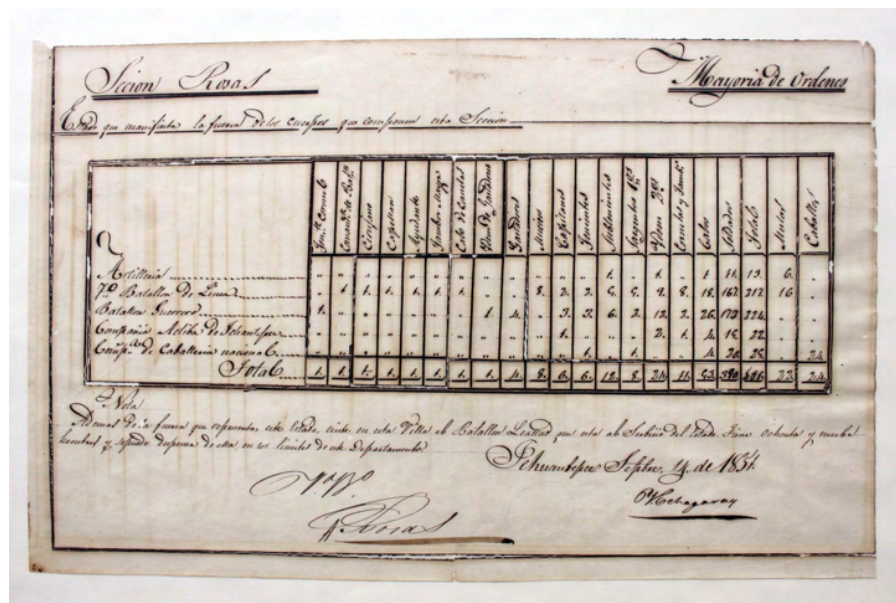 Seccion Rosas
Mayoria de Ordenes
Estado que manifiesta la fuerza de los cuerpos que componen esta Seccion
Cirujano
Capellan
Ayudante
Tambor Mayor
Cabo de Cornetas
Gastadores
Musicos
Capitanes
Tenientes
Subtenientes
Sargentos 1os
Cabos
Soldados
Total
Mulas
Caballos
Artilleria " " " " " " " " " " " " 1. " 1. " 1. 11. 13. 6.
7o Batallon de Linea " 1. 1. 1. 1. 1. 1. " " 8. 2. 2. 5. 5. 9. 8. 18. 167. 217. 16
Batallon Guerrero 1. " " " " " " 1. 4. " 3. 3. 6. 2. 12. 2. 26. 173 224. "
Compañia Activa de Tehuantepec 1. " " " 2. 1. 4. 15. 22.
de Caballeria nacional 1. " 1. 4. 24.
Total 1. 1. 1. 1. 1. 1. 1. 1. 4. 8. 6. 6. 12. 8. 24. 11. 53. 22. 24.
Nota
Ademas de la fuerza que representa este Estado, en esta Villa el Batallon Lealtad que esta al Servicio del Estado
hombres y dispersa de ella en los limites de este Departamento
Tehuantepec Sepbre. 14. de 1851.
Echagaray
Vo Bo
Rosas